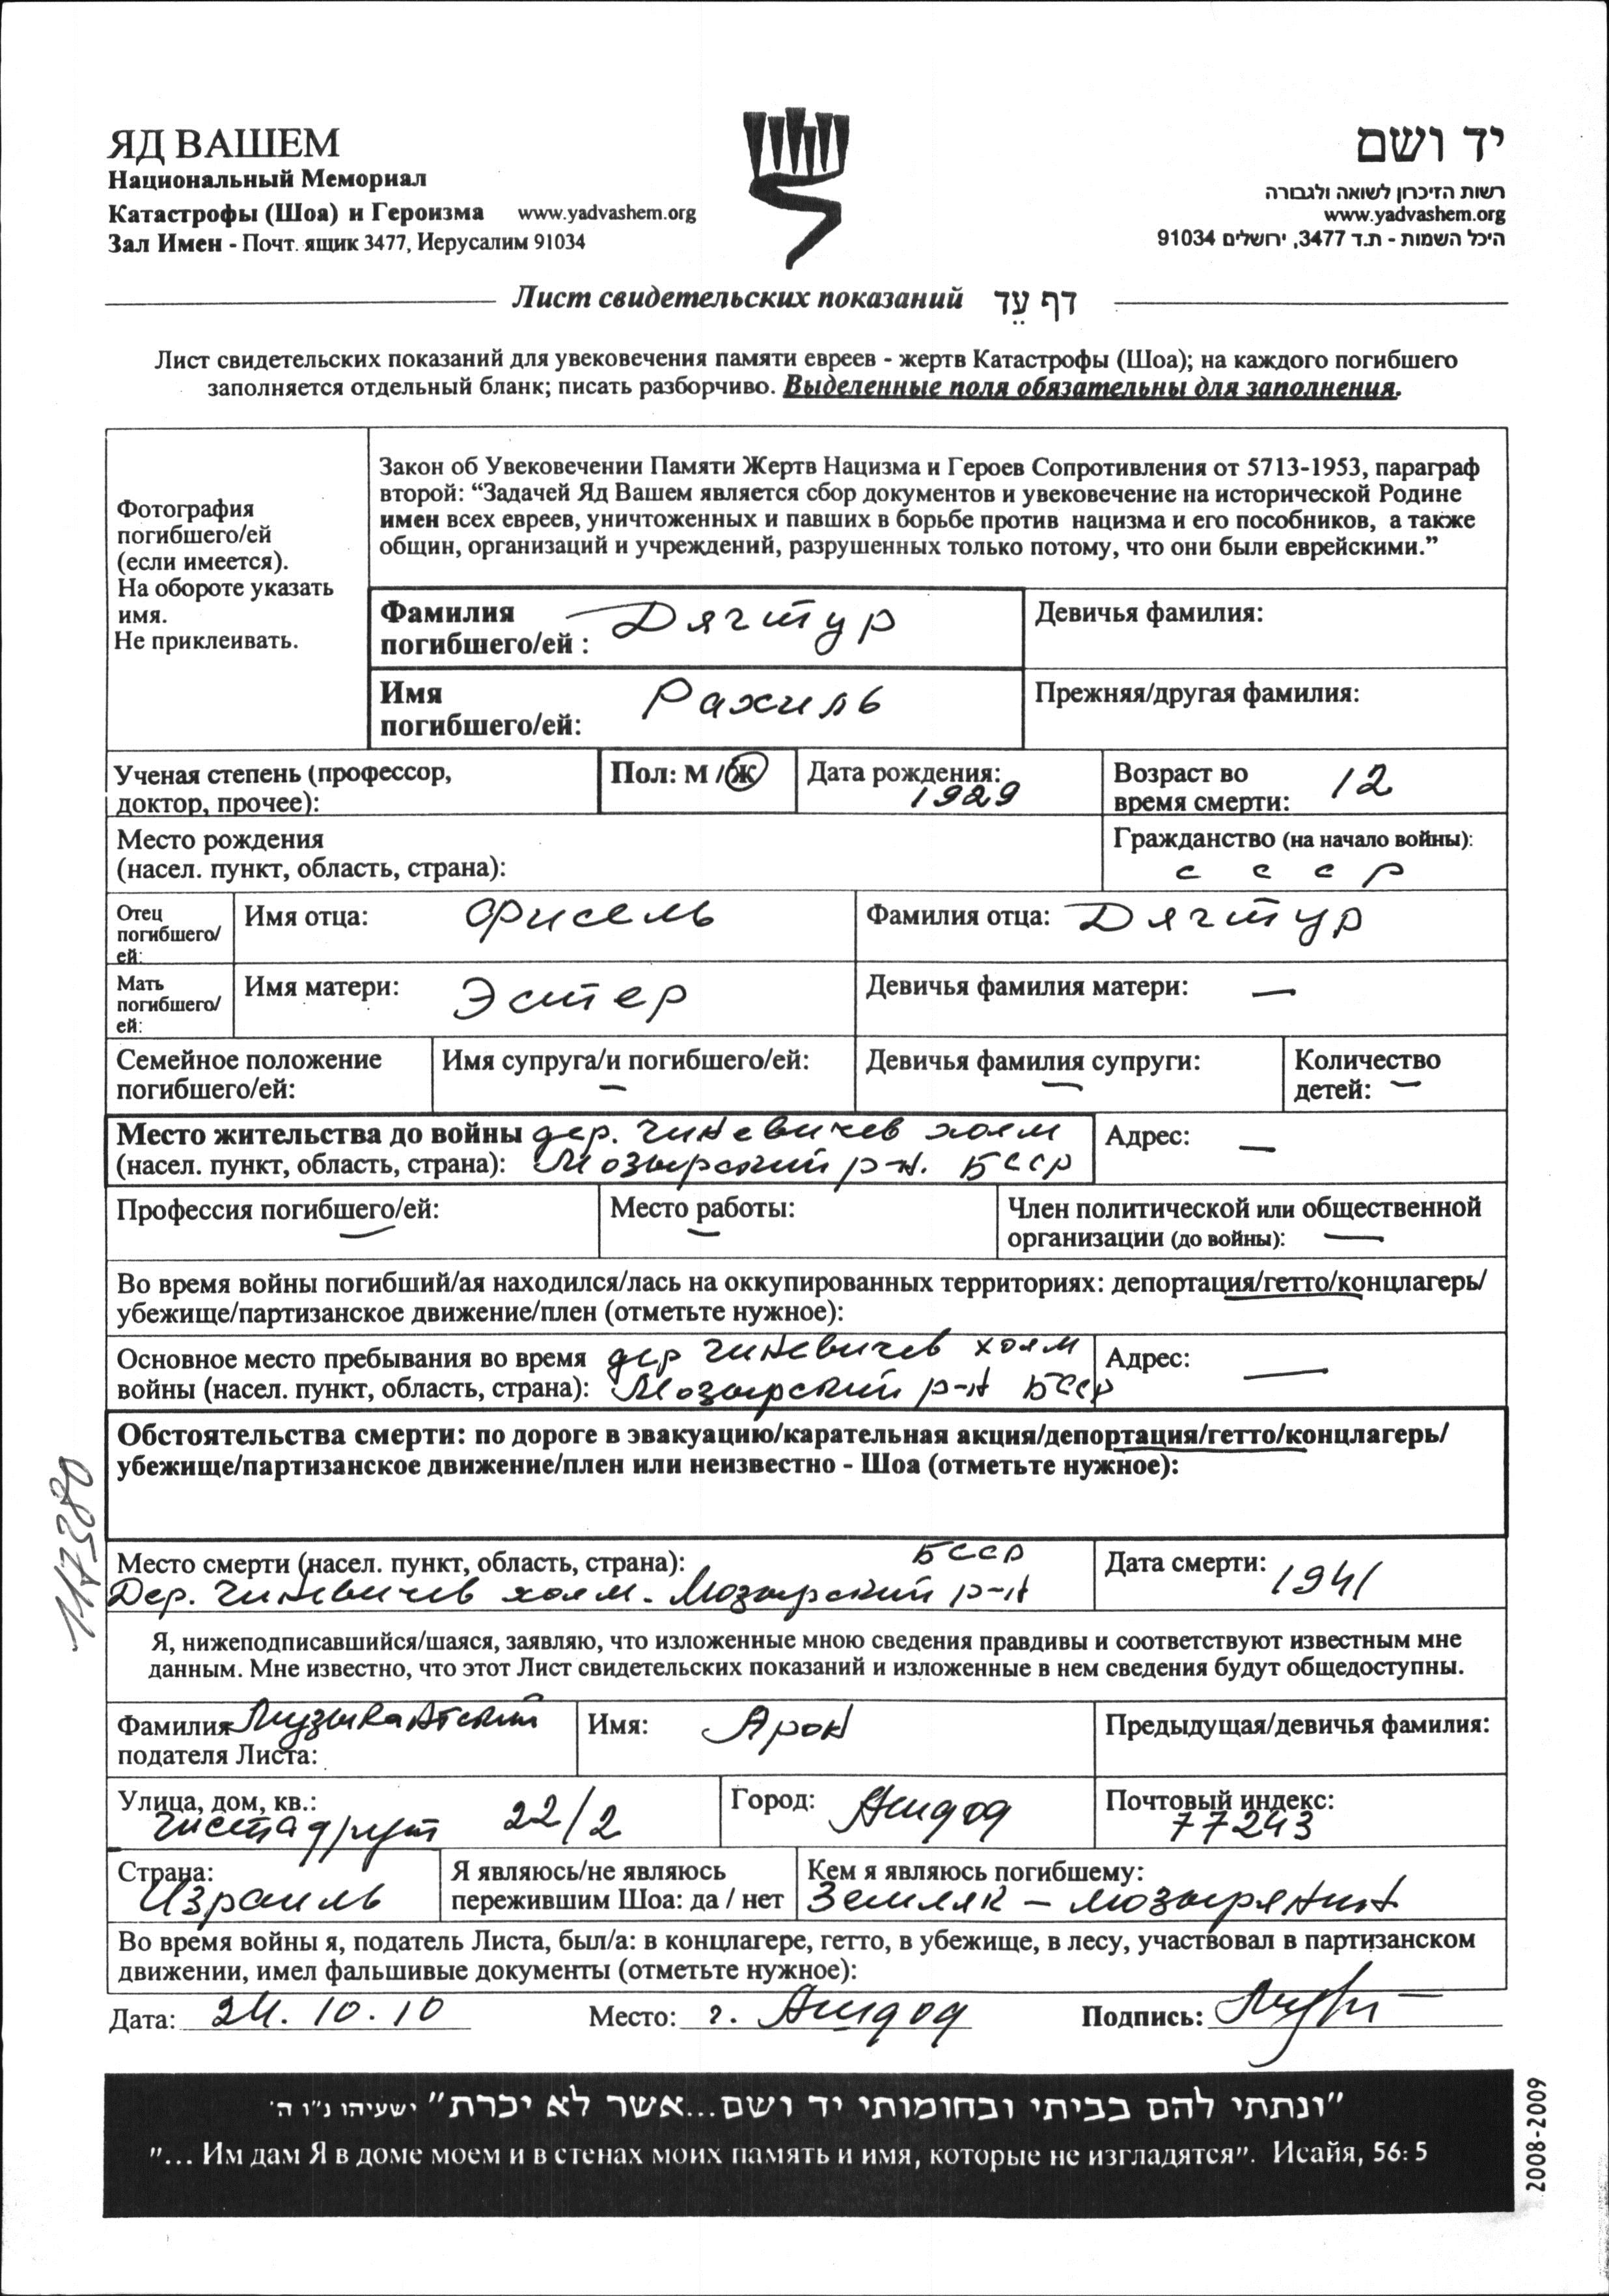 ЯД ВАШЕМ
Национальный Мемориал
Катастрофы (Шоа) и Героизма www.yadvashem.org
Зал Имен - Почт. ящик 3477, Иерусалим 91034
יד ושם
רשות הזיכרון לשואה ולגבורה
www.yadvashem.org
היכל השמות - ת.ד 3477, ירושלים 91034
Лист свидетельских показаний דף עֵד
Лист свидетельских показаний для увековечения памяти евреев - жертв Катастрофы (Шоа); на каждого погибшего
заполняется отдельный бланк; писать разборчиво. Выделенные поля обязательны для заполнения.
Фотография
погибшего/ей
(если имеется).
На обороте указать
имя.
Не приклеивать.
Закон об Увековечении Памяти Жертв Нацизма и Героев Сопротивления от 5713-1953, параграф
второй: “Задачей Яд Вашем является сбор документов и увековечение на исторической Родине
имен всех евреев, уничтоженных и павших в борьбе против нацизма и его пособников, а также
общин, организаций и учреждений, разрушенных только потому, что они были еврейскими.”
Фамилия
погибшего/ей : Дягтур
Девичья фамилия:
Имя
погибшего/ей: Рахиль
Прежняя/другая фамилия:
Ученая степень (профессор,
доктор, прочее):
Пол: М / Ж
Дата рождения:
1929
Возраст во
время смерти: 12
Место рождения
(насел. пункт, область, страна):
Гражданство (на начало войны):
с с с р
Отец
погибшего/
ей:
Имя отца: Фисель
Фамилия отца: Дягтур
Мать
погибшего/
ей:
Имя матери: Эстер
Девичья фамилия матери: —
Семейное положение
погибшего/ей:
Имя супруга/и погибшего/ей:
—
Девичья фамилия супруги:
—
Количество
детей: —
Место жительства до войны дер. Гиневичев холм
(насел. пункт, область, страна): Мозырский р-н. БССР
Адрес: —
Профессия погибшего/ей:
—
Место работы:
—
Член политической или общественной
организации (до войны): —
Во время войны погибший/ая находился/лась на оккупированных территориях: депортация/гетто/концлагерь/
убежище/партизанское движение/плен (отметьте нужное):
Основное место пребывания во время дер Гиневичев холм
войны (насел. пункт, область, страна): Мозырский р-н БССР
Адрес: —
Обстоятельства смерти: по дороге в эвакуацию/карательная акция/депортация/гетто/концлагерь/
убежище/партизанское движение/плен или неизвестно - Шоа (отметьте нужное):
117380
Место смерти (насел. пункт, область, страна): БССР
Дер. Гиневичев холм. Мозырский р-н
Дата смерти: 1941
Я, нижеподписавшийся/шаяся, заявляю, что изложенные мною сведения правдивы и соответствуют известным мне
данным. Мне известно, что этот Лист свидетельских показаний и изложенные в нем сведения будут общедоступны.
Фамилия Музыкантский
подателя Листа:
Имя: Арон
Предыдущая/девичья фамилия:
Улица, дом, кв.:
Гистадрут 22/2
Город: Ашдод
Почтовый индекс:
77243
Страна:
Израиль
Я являюсь/не являюсь
пережившим Шоа: да / нет
Кем я являюсь погибшему:
Земляк – мозырянин
Во время войны я, податель Листа, был/а: в концлагере, гетто, в убежище, в лесу, участвовал в партизанском
движении, имел фальшивые документы (отметьте нужное):
Дата: 24.10.10 Место: г. Ашдод Подпись:
"ונתתי להם בביתי ובחומותי יד ושם...אשר לא יכרת" ישעיהו נ"ו ה'
"... Им дам Я в доме моем и в стенах моих память и имя, которые не изгладятся". Исайя, 56: 5
2008-2009